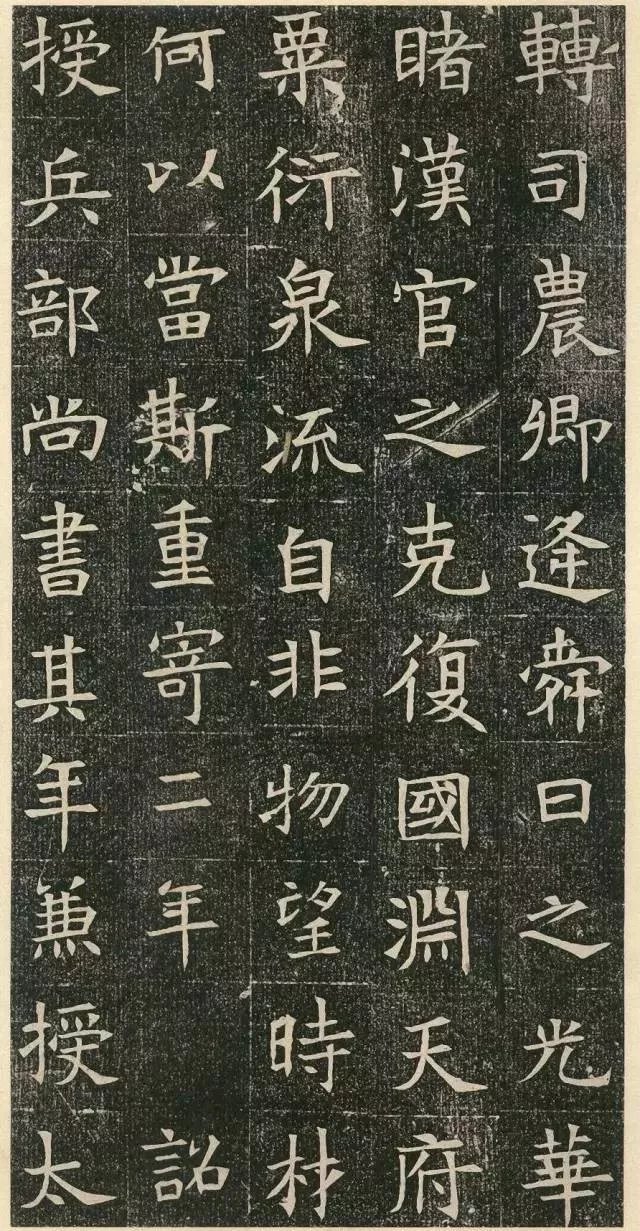 轉司農卿逢舜日之光華
睹漢官之克復國淵天府
粟衍泉流自非物望時材
何以當斯重寄二年 詔
授兵部尚書其年兼授太